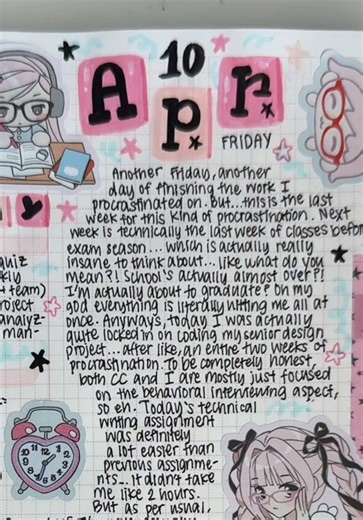 10
Apr
FRIDAY
Another Friday, another
day of finishing the work I
procrastinated on. But... this is the last
week for this kind of procrastination. Next
week is technically the last week of classes before
exam season... which is actually really
insane to think about... like what do you
mean?! School's actually almost over?!
I'm actually about to graduate? Oh my
god everything is literally hitting me all at
once. Anyways, today I was actually
quite locked in on coding my senior design
project... after like, an entire two weeks of
procrastination. To be completely honest,
both CC and I are mostly just focused
on the behavioral interviewing aspect,
so eh. Today's technical
writing assignment
was definitely
a lot easier than
previous assignme-
nts... It didn't take
me like 2 hours.
But as per usual,
y
quiz
+ team)